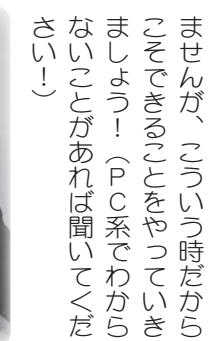 ませんが、こういう時だから
こそできることをやっていき
ましょう！（ＰＣ系でわから
ないことがあれば聞いてくだ
さい！）